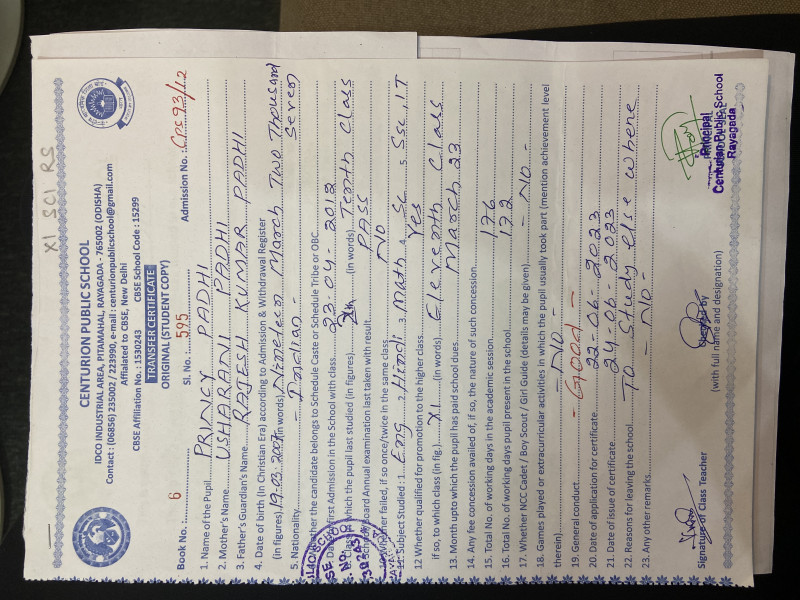 XI SCI RS
CENTURION PUBLIC SCHOOL
IDCO INDUSTRIAL AREA, PITAMAHAL, RAYAGADA - 765002 (ODISHA)
Contact : (06856) 235002 / 223990, e-mail : centurionpublicschool@gmail.com
Affialated to CBSE, New Delhi
CBSE Affiliation No. : 1530243 CBSE School Code : 15299
TRANSFER CERTIFICATE
ORIGINAL (STUDENT COPY)
Book No. : 6 Sl. No. : 595 Admission No. : CPS 93/12
1. Name of the Pupil PRINCY PADHI
2. Mother's Name USHARANI PADHI
3. Father's Guardian's Name RAJESH KUMAR PADHI
4. Date of birth (In Christian Era) according to Admission & Withdrawal Register
(in figures) 19-03-2007 (in words) Nineteen March Two Thousand
Seven
5. Nationality - Indian -
whether the candidate belongs to Schedule Caste or Schedule Tribe or OBC
first Admission in the School with class 23-04-2012
which the pupil last studied (in figures) Xth (in words) Tenth Class
Board Annual examination last taken with result PASS
failed, if so once/twice in the same class NO
11. Subject Studied : 1. Eng 2. Hindi 3. Math 4. Sc 5. SSc, IT
12 Whether qualified for promotion to the higher class Yes
if so, to which class (in fig.) XI (in words) Eleventh Class
13. Month upto which the pupil has paid school dues. March 23
14. Any fee concession availed of, if so, the nature of such concession
15. Total No. of working days in the academic session. 176
16. Total No. of working days pupil present in the school 172
17. Whether NCC Cadet / Boy Scout / Girl Guide (details may be given) - NO -
18. Games played or extracurricular activities in which the pupil usually took part (mention achievement level
therein). - NO -
19. General conduct - Good -
20. Date of application for certificate 22-06-2023
21. Date of issue of certificate 24-06-2023
22. Reasons for leaving the school To Study else where
23. Any other remarks - NO -
Signature of Class Teacher
(with full name and designation)
Principal
Centurion Public School
Rayagada